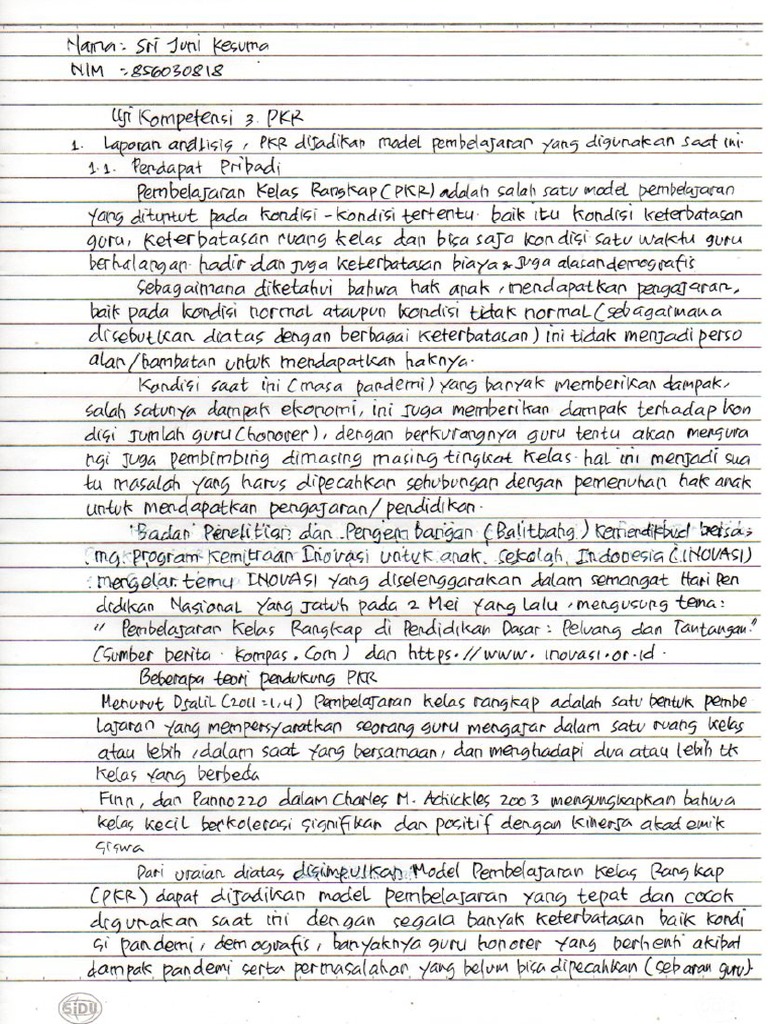 Nama : Sri Juni Kesuma
NIM : 856030818
Uji Kompetensi 3. PKR
1. Laporan analisis, PKR dijadikan model pembelajaran yang digunakan saat ini.
1.1. Pendapat Pribadi
Pembelajaran Kelas Rangkap (PKR) adalah salah satu model pembelajaran
yang dituntut pada kondisi-kondisi tertentu. baik itu kondisi keterbatasan
guru, keterbatasan ruang kelas dan bisa saja kondisi satu waktu guru
berhalangan hadir dan juga keterbatasan biaya & juga alasan demografis
Sebagaimana diketahui bahwa hak anak, mendapatkan pengajaran,
baik pada kondisi normal ataupun kondisi tidak normal (sebagaimana
disebutkan diatas dengan berbagai keterbatasan) ini tidak menjadi perso
alan/hambatan untuk mendapatkan haknya.
Kondisi saat ini (masa pandemi) yang banyak memberikan dampak,
salah satunya dampak ekonomi, ini juga memberikan dampak terhadap kon
disi jumlah guru (honorer), dengan berkurangnya guru tentu akan mengura
ngi juga pembimbing dimasing masing tingkat kelas. hal ini menjadi sua
tu masalah yang harus dipecahkan sehubungan dengan pemenuhan hak anak
untuk mendapatkan pengajaran/pendidikan.
Badan Penelitian dan Pengembangan (Balitbang) Kemendikbud bersa
ma program Kemitraan Inovasi untuk anak sekolah Indonesia (INOVASI)
mengelar temu INOVASI yang diselenggarakan dalam semangat Hari Pen
didikan Nasional yang jatuh pada 2 Mei yang lalu, mengusung tema:
" Pembelajaran Kelas Rangkap di Pendidikan Dasar : Peluang dan Tantangan."
(Sumber berita . Kompas. Com) dan https://www. inovasi.or.id.
Beberapa teori pendukung PKR
Menurut Djalil (2011=1,4) Pembelajaran kelas rangkap adalah satu bentuk pembe
lajaran yang mempersyaratkan seorang guru mengajar dalam satu ruang kelas
atau lebih, dalam saat yang bersamaan, dan menghadapi dua atau lebih tk
kelas yang berbeda
Finn, dan Pannozzo dalam Charles M. Achickles 2003 mengungkapkan bahwa
kelas kecil berkolerasi signifikan dan positif dengan kinerja akademik
siswa
Dari uraian diatas disimpulkan Model Pembelajaran Kelas Rangkap
(PKR) dapat dijadikan model pembelajaran yang tepat dan cocok
digunakan saat ini dengan segala banyak keterbatasan baik kondi
si pandemi, demografis, banyaknya guru honorer yang berhenti akibat
dampak pandemi serta permasalahan yang belum bisa dipecahkan (sebaran guru).
SiDU